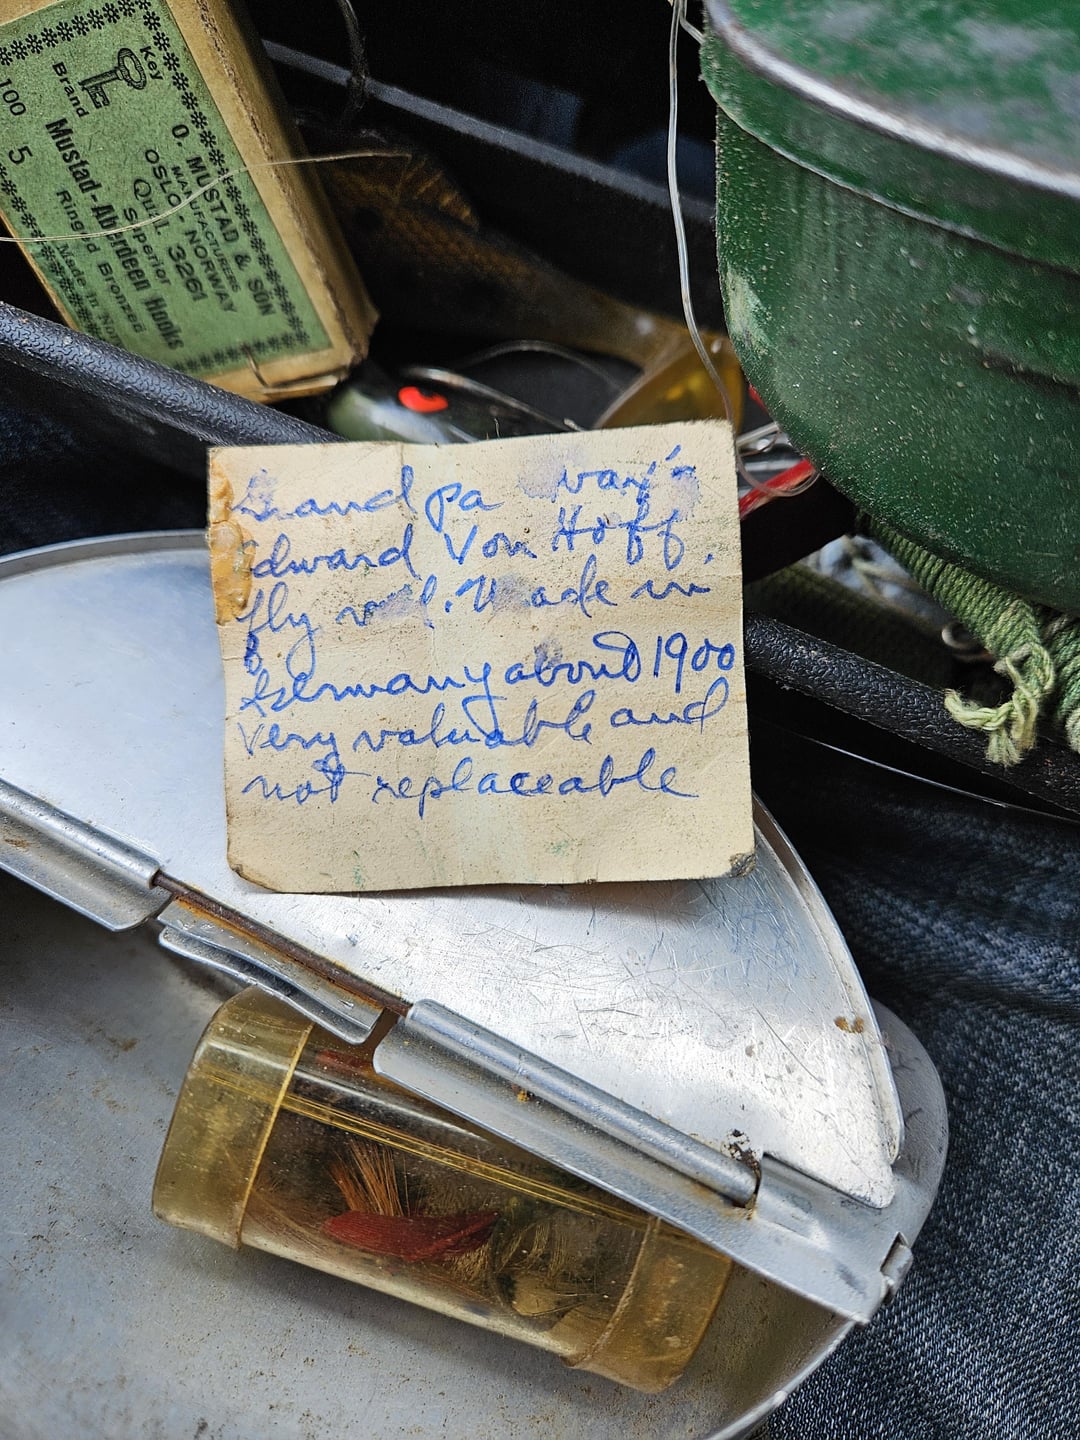 Key
Brand
O. MUSTAD & SON
MANUFACTURERS
OSLO NORWAY
Qual. 3261
Superior
Mustad-Aberdeen Hooks
Ringed Bronzed
Made in
100 5
Grandpa
Edward Von Hoff.
fly Made in
Germany about 1900
Very valuable and
not replaceable